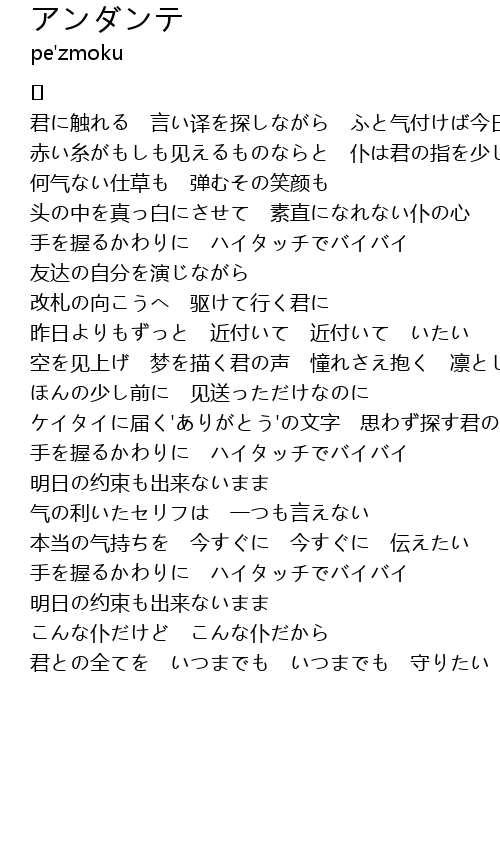 アンダンテ
pe'zmoku
[]
君に触れる　言い译を探しながら　ふと气付けば今日
赤い糸がもしも见えるものならと　仆は君の指を少し
何气ない仕草も　弾むその笑颜も
头の中を真っ白にさせて　素直になれない仆の心
手を握るかわりに　ハイタッチでバイバイ
友达の自分を演じながら
改札の向こうへ　驱けて行く君に
昨日よりもずっと　近付いて　近付いて　いたい
空を见上げ　梦を描く君の声　憧れさえ抱く　凛とし
ほんの少し前に　见送っただけなのに
ケイタイに届く'ありがとう'の文字　思わず探す君の
手を握るかわりに　ハイタッチでバイバイ
明日の约束も出来ないまま
气の利いたセリフは　一つも言えない
本当の气持ちを　今すぐに　今すぐに　伝えたい
手を握るかわりに　ハイタッチでバイバイ
明日の约束も出来ないまま
こんな仆だけど　こんな仆だから
君との全てを　いつまでも　いつまでも　守りたい